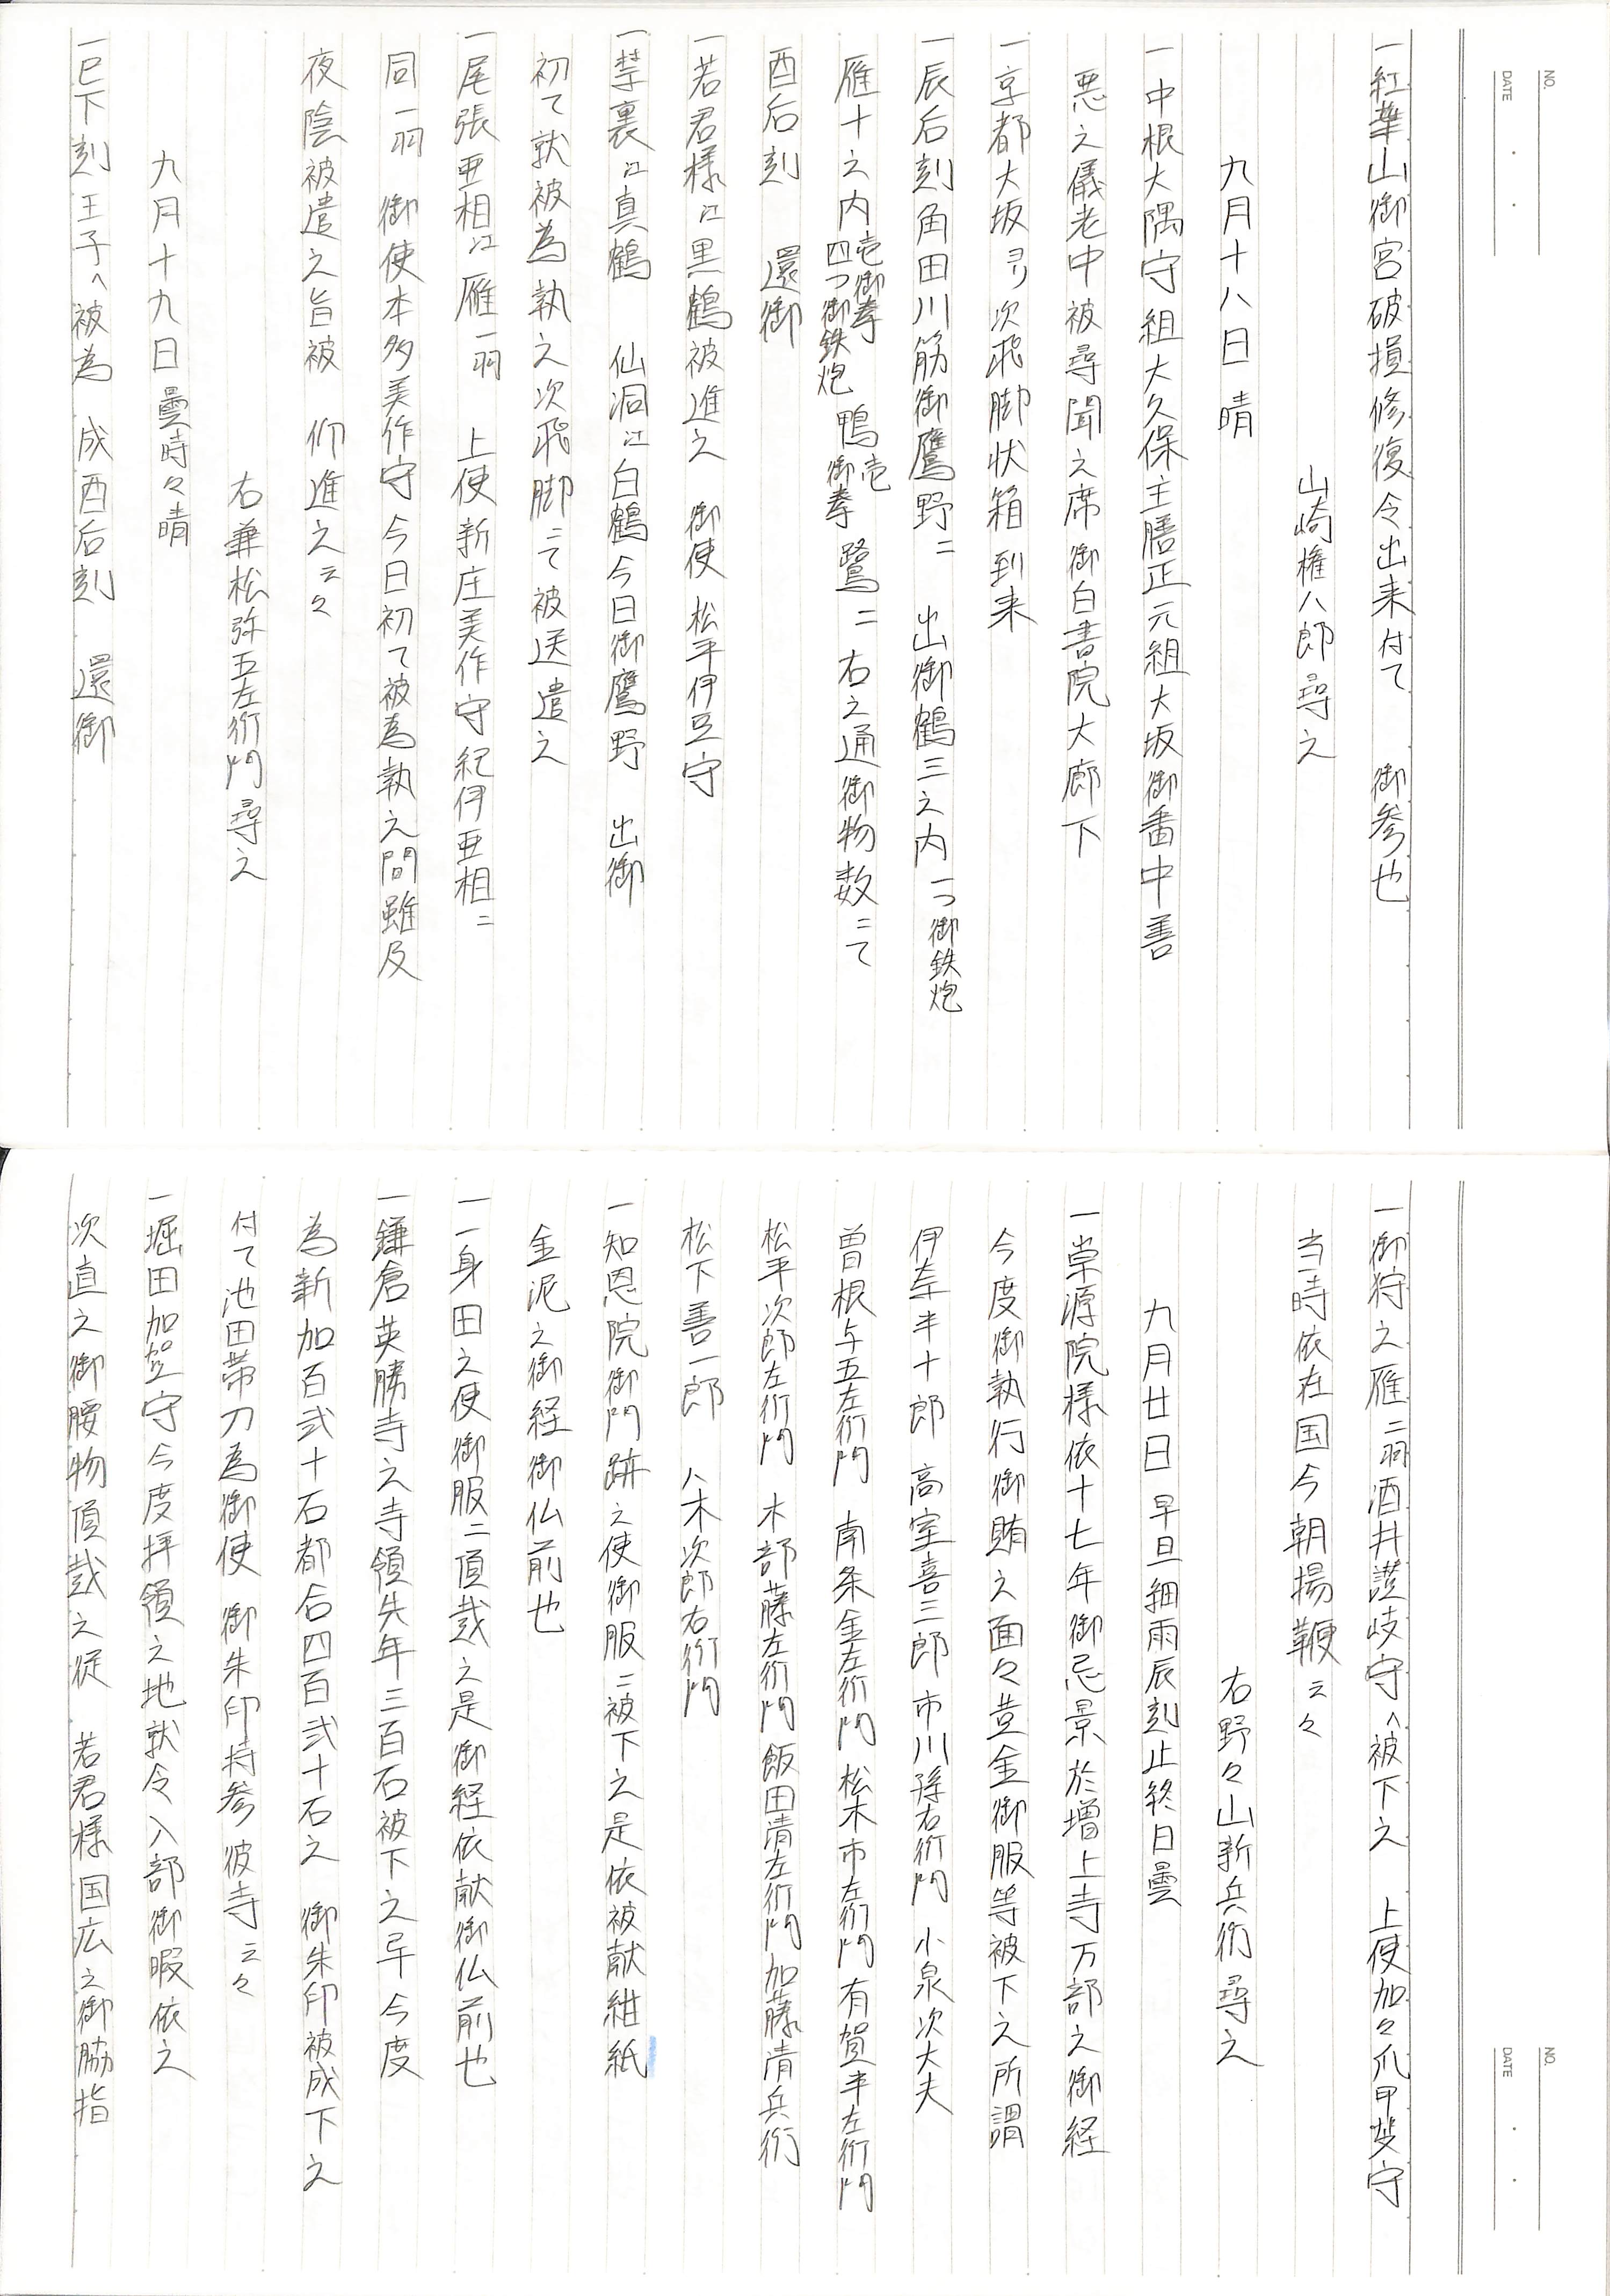 NO.
DATE
一紅葉山御宮破損修復令出来付て　御参也
山崎権八郎尋之
九月十八日 晴
一中根大隅守組大久保主膳正元組大坂御番中善
悪之儀老中被尋聞之席御白書院大廊下
一京都大坂ヨリ次飛脚状箱到来
一辰后刻角田川筋御鷹野ニ　出御鶴三之内一つ御鉄炮
雁十之内壱御拳四つ御鉄炮 鴨壱御拳 鷺二 右之通御物数ニて
酉后刻　還御
一若君様江黒鶴被進之　御使 松平伊豆守
一禁裏江真鶴　仙洞江白鶴今日御鷹野　出御
初て就被為執之次飛脚ニて被送遣之
一尾張亜相江雁一羽　上使新庄美作守紀伊亜相ニ
同一羽　御使本多美作守今日初て被為執之間雖及
夜陰被遣之旨被　仰進之云々
右兼松弥五左衛門尋之
九月十九日曇時々晴
一巳下刻王子へ被為　成酉后刻　還御
NO.
DATE
一御狩之雁二羽酒井讃岐守へ被下之　上使加々爪甲斐守
当時依在国今朝揚鞭云々
右野々山新兵衛尋之
九月廿日 早旦細雨辰刻止終日曇
一崇源院様依十七年御忌景於増上寺万部之御経
今度御執行御賄之面々並金御服等被下之所謂
伊奈半十郎　高室喜三郎 市川孫右衛門 小泉次大夫
曽根与五左衛門　南条金左衛門 松木市左衛門 有賀半左衛門
松平次郎左衛門　木部藤左衛門 飯田清左衛門 加藤清兵衛
松下善一郎　八木次郎右衛門
一知恩院御門跡之使御服二被下之是依被献紺紙
金泥之御経御仏前也
一一身田之使御服二頂戴之是御経依献御仏前也
一鎌倉英勝寺之寺領先年三百石被下之早今度
為新加百弐十石都合四百弐十石之　御朱印被成下之
付て池田帯刀為御使　御朱印持参彼寺云々
一堀田加賀守今度拝領之地就令入部御暇依之
次直之御腰物頂戴之従　若君様国広之御脇指